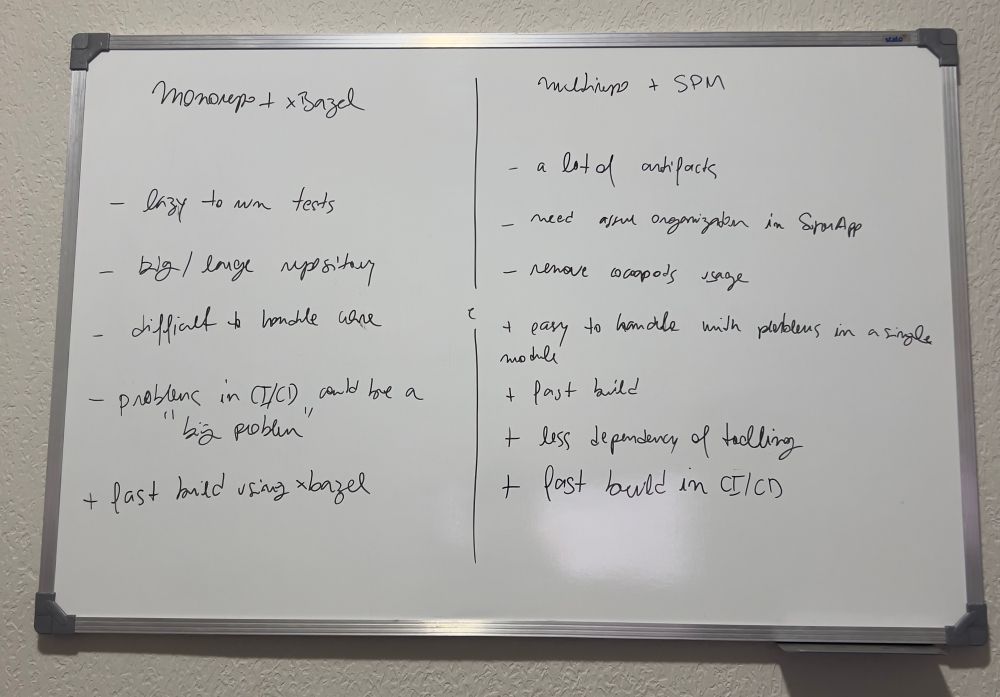 Monorepo + xBazel
- lazy to run tests
- big / large repository
- difficult to handle
- problems in CI/CD could be a
"big problem"
+ fast build using xbazel
multirepo + SPM
- a lot of artifacts
- need organization in SuperApp
- remove cocoapods usage
+ easy to handle with problems in a single
module
+ fast build
+ less dependency of toolling
+ fast build in CI/CD